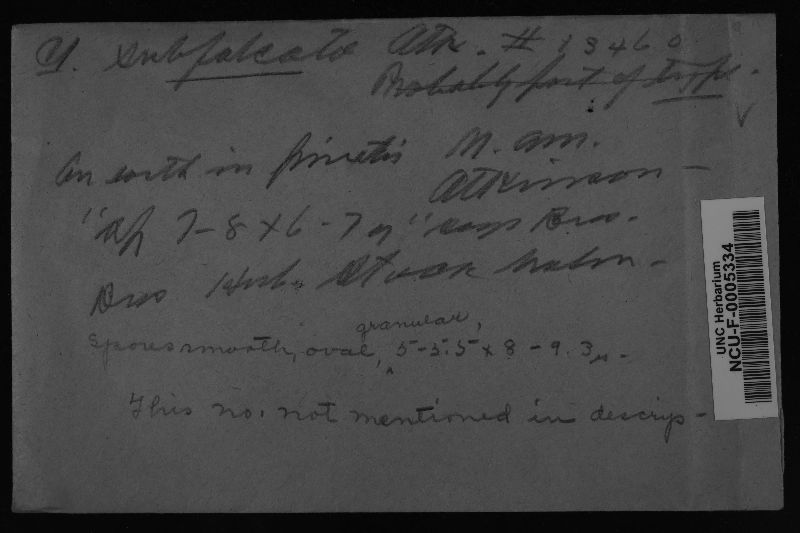 subfalcata Atk. # 13460
Probably part of type.
On earth in pinetis N. Am.
Atkinson -
"Sp 7-8 x 6-7 μ" says Bres.
Bres Herb. Stockholm -
granular,
Spores smooth, oval, ^ 5-5.5 x 8-9.3 μ.
This no. not mentioned in descrip-
UNC Herbarium
NCU-F-0005334